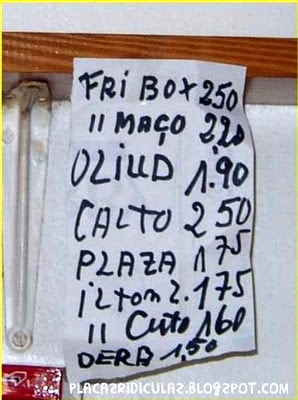 FRI BOX 250
11 MAÇO 2,20
OLIUD 1.90
CALTO 250
PLAZA 175
iLTON 2. 175
11 CUTO 160
DERA 1,50
PLACAZRIDICULAZ.BLOGZPOT.COM